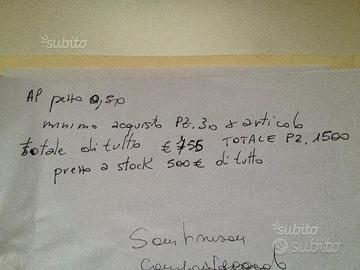 subito
AP pezzo 0,50
minimo acquisto PZ. 30 x articolo
totale di tutto € 755 TOTALE PZ. 1500
prezzo a stock 500€ di tutto
subito
subito